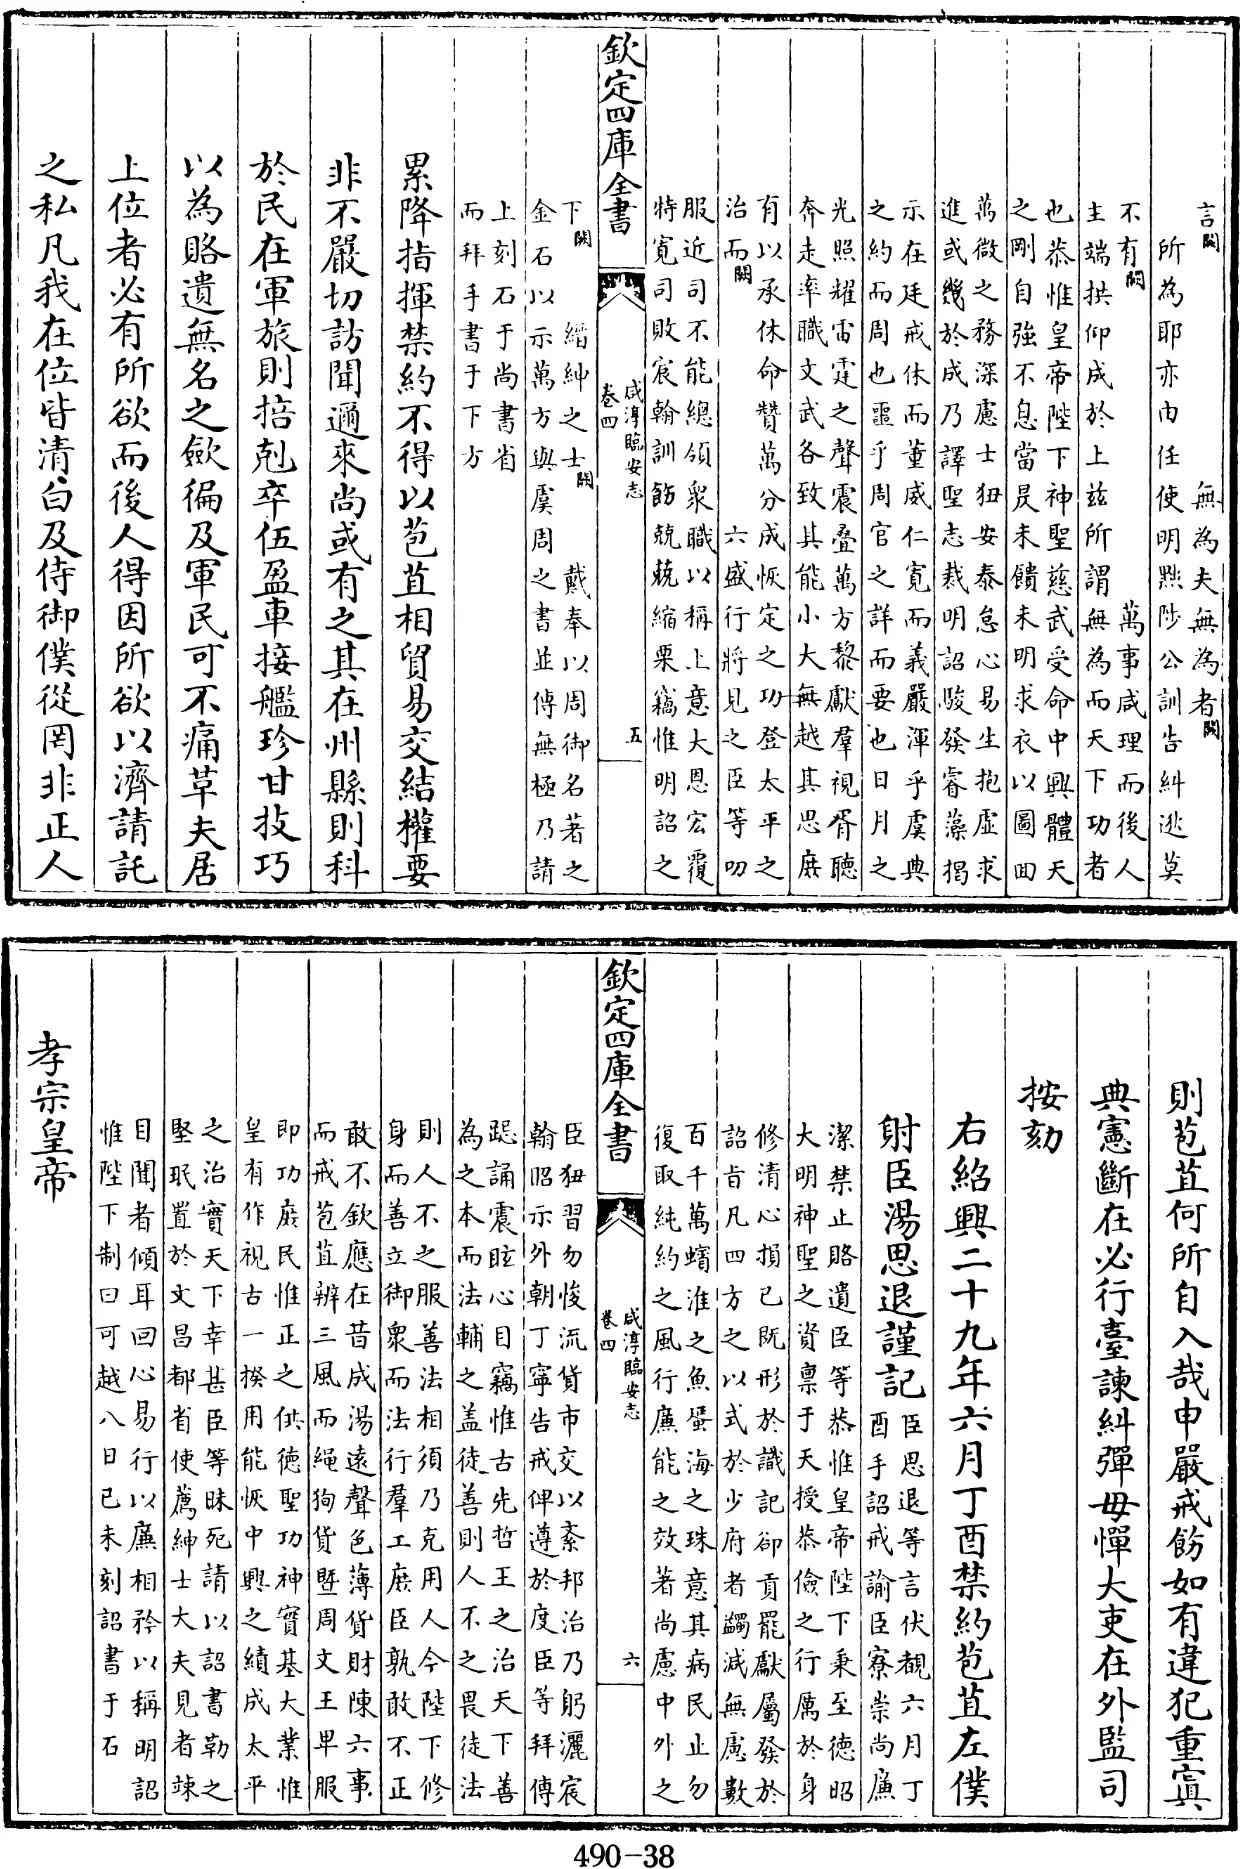 言闕　無為夫無為者闕
所為耶亦内任使明㸃陟公訓告糾逃莫
不有闕　萬事咸理而後人
主端拱仰成於上兹所謂無為而天下功者
也恭惟皇帝陛下神聖慈武受命中興體天
之剛自強不息當晨未饋未明求衣以圖回
萬微之務深慮士狃安泰怠心易生抱虛求
進或幾於成乃譯聖志裁明詔駿發睿藻揭
示在廷戒休而董威仁寛而義嚴渾乎虞典
之約而周也噩乎周官之詳而要也日月之
光照耀雷霆之聲震叠萬方黎獻羣視胥聽
奔走率職文武各致其能小大無越其思庶
有以承休命贊萬分成恢定之功登太平之
治而闕　六盛行將見之臣等叨
服近司不能總領衆職以稱上意大恩宏覆
特寛司敗宸翰訓飭兢兢縮栗竊惟明詔之
欽定四庫全書
咸淳臨安志
卷四
五
下闕　縉紳之士闕　戴奉以周御名著之
金石以示萬方與虞周之書並傳無極乃請
上刻石于尚書省
而拜手書于下方
累降指揮禁約不得以苞苴相貿易交結權要
非不嚴切訪聞邇來尚或有之其在州縣則科
於民在軍旅則掊剋卒伍盈車接艦珍甘技巧
以為賂遺無名之斂徧及軍民可不痛草夫居
上位者必有所欲而後人得因所欲以濟請託
之私凡我在位皆清白及侍御僕從罔非正人
則苞苴何所自入哉申嚴戒飭如有違犯重寘
典憲斷在必行臺諫糾彈毋憚大吏在外監司
按劾
右紹興二十九年六月丁酉禁約苞苴左僕
射臣湯思退謹記
臣思退等言伏覩六月丁
酉手詔戒諭臣寮崇尚廉
潔禁止賂遺臣等恭惟皇帝陛下秉至德昭
大明神聖之資禀于天授恭儉之行厲於身
修清心損己既形於識記卻貢罷獻屬發於
詔旨凡四方之以式於少府者蠲減無慮數
百千萬蠙淮之魚蜑海之珠意其病民止勿
復取純約之風行廉能之效著尚慮中外之
欽定四庫全書
咸淳臨安志
卷四
六
臣狃習勿悛流貨市交以紊邦治乃躬灑宸
翰昭示外朝丁寧告戒俾遵於度臣等拜傅
跽誦震眩心目竊惟古先哲王之治天下善
為之本而法輔之盖徒善則人不之畏徒法
則人不之服善法相須乃克用人今陛下修
身而善立御衆而法行羣工庶臣孰敢不正
敢不欽應在昔成湯遠聲色薄貨財陳六事
而戒苞苴辨三風而繩狥貨暨周文王卑服
即功庶民惟正之供德聖功神實基大業惟
皇有作視古一揆用能恢中興之績成太平
之治實天下幸甚臣等昧死請以詔書勒之
堅珉置於文昌都省使薦紳士大夫見者竦
目聞者傾耳回心易行以廉相矜以稱明詔
惟陛下制曰可越八日己未刻詔書于石
孝宗皇帝
490-38